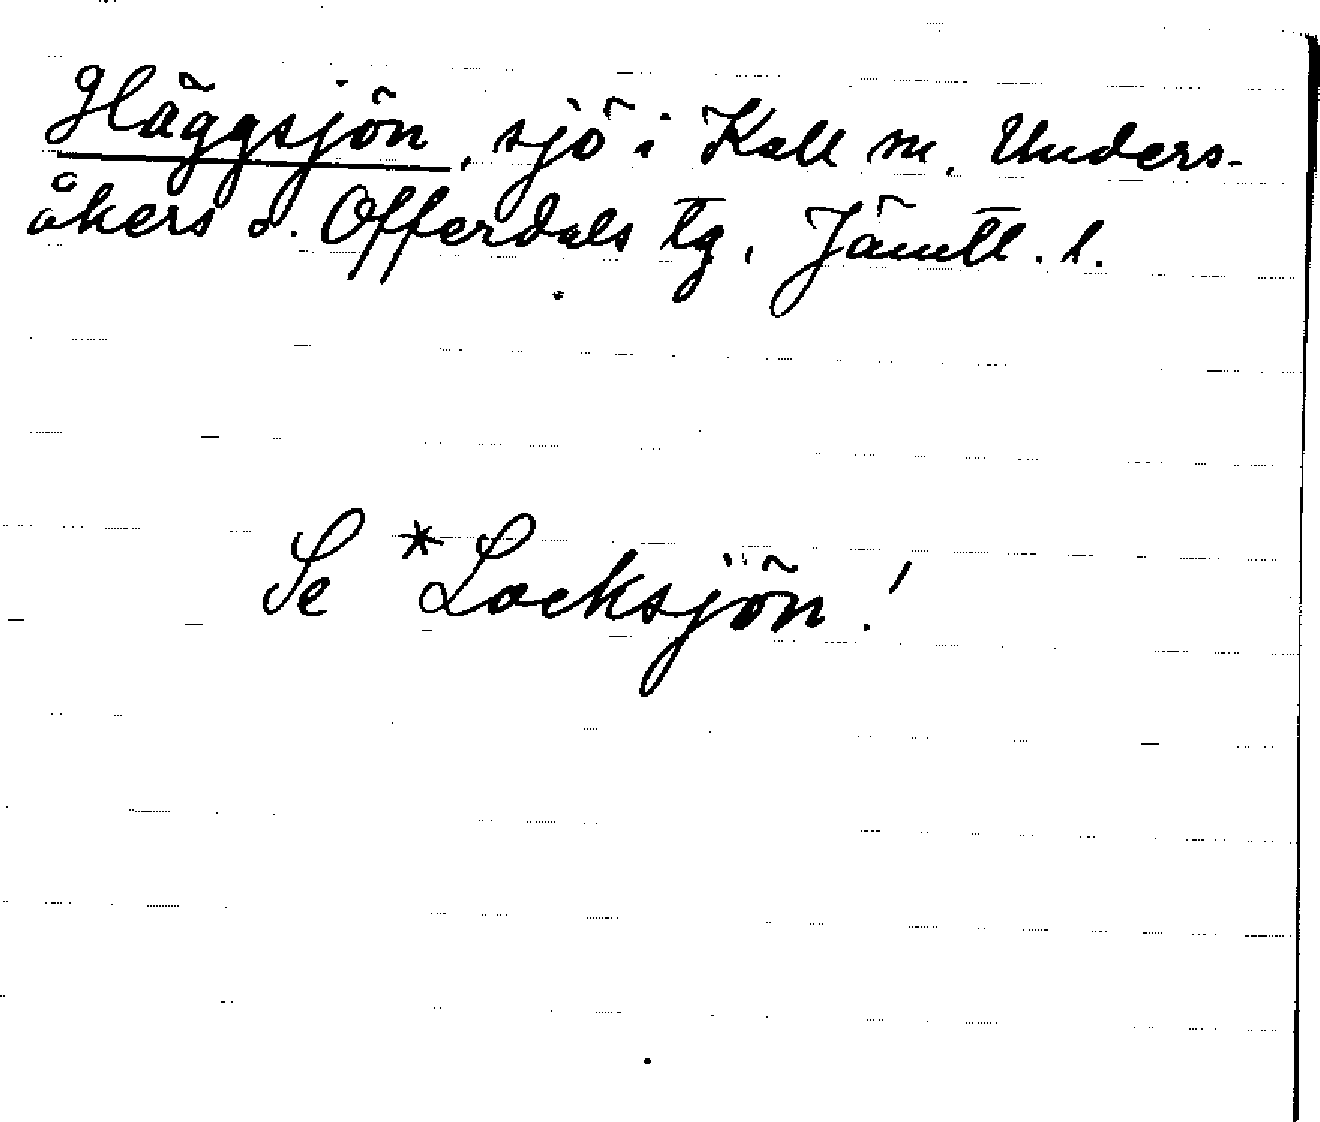 Häggsjön, sjö i Kall sn, Unders-
åkers o. Offerdals tg, Jämtl. l.
Se *Locksjön!